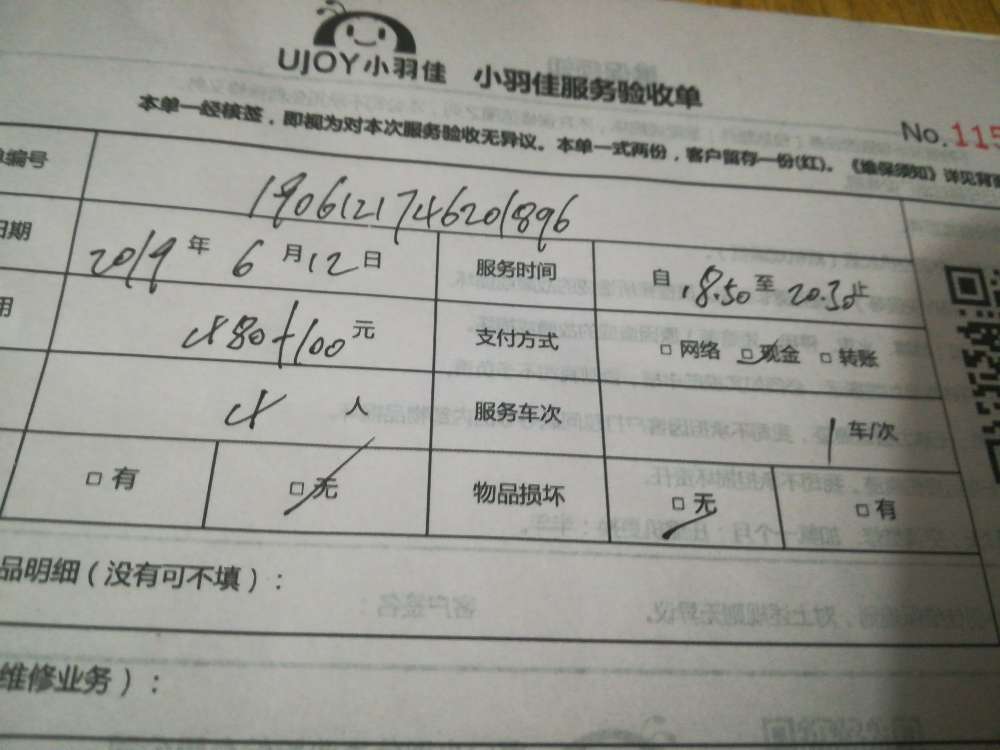 UJOY小羽佳 小羽佳服务验收单
本单一经核签，即视为对本次服务验收无异议。本单一式两份，客户留存一份(红)。《维保须知》详见背
No.115
编号 1906121746201896
日期 2019年6月12日 服务时间 自18.50至20.30止
用 480+100元 支付方式 □网络 □现金 □转账
4人 服务车次 1车/次
□有 □无 物品损坏 □无 □有
品明细（没有可不填）：
维修业务）：